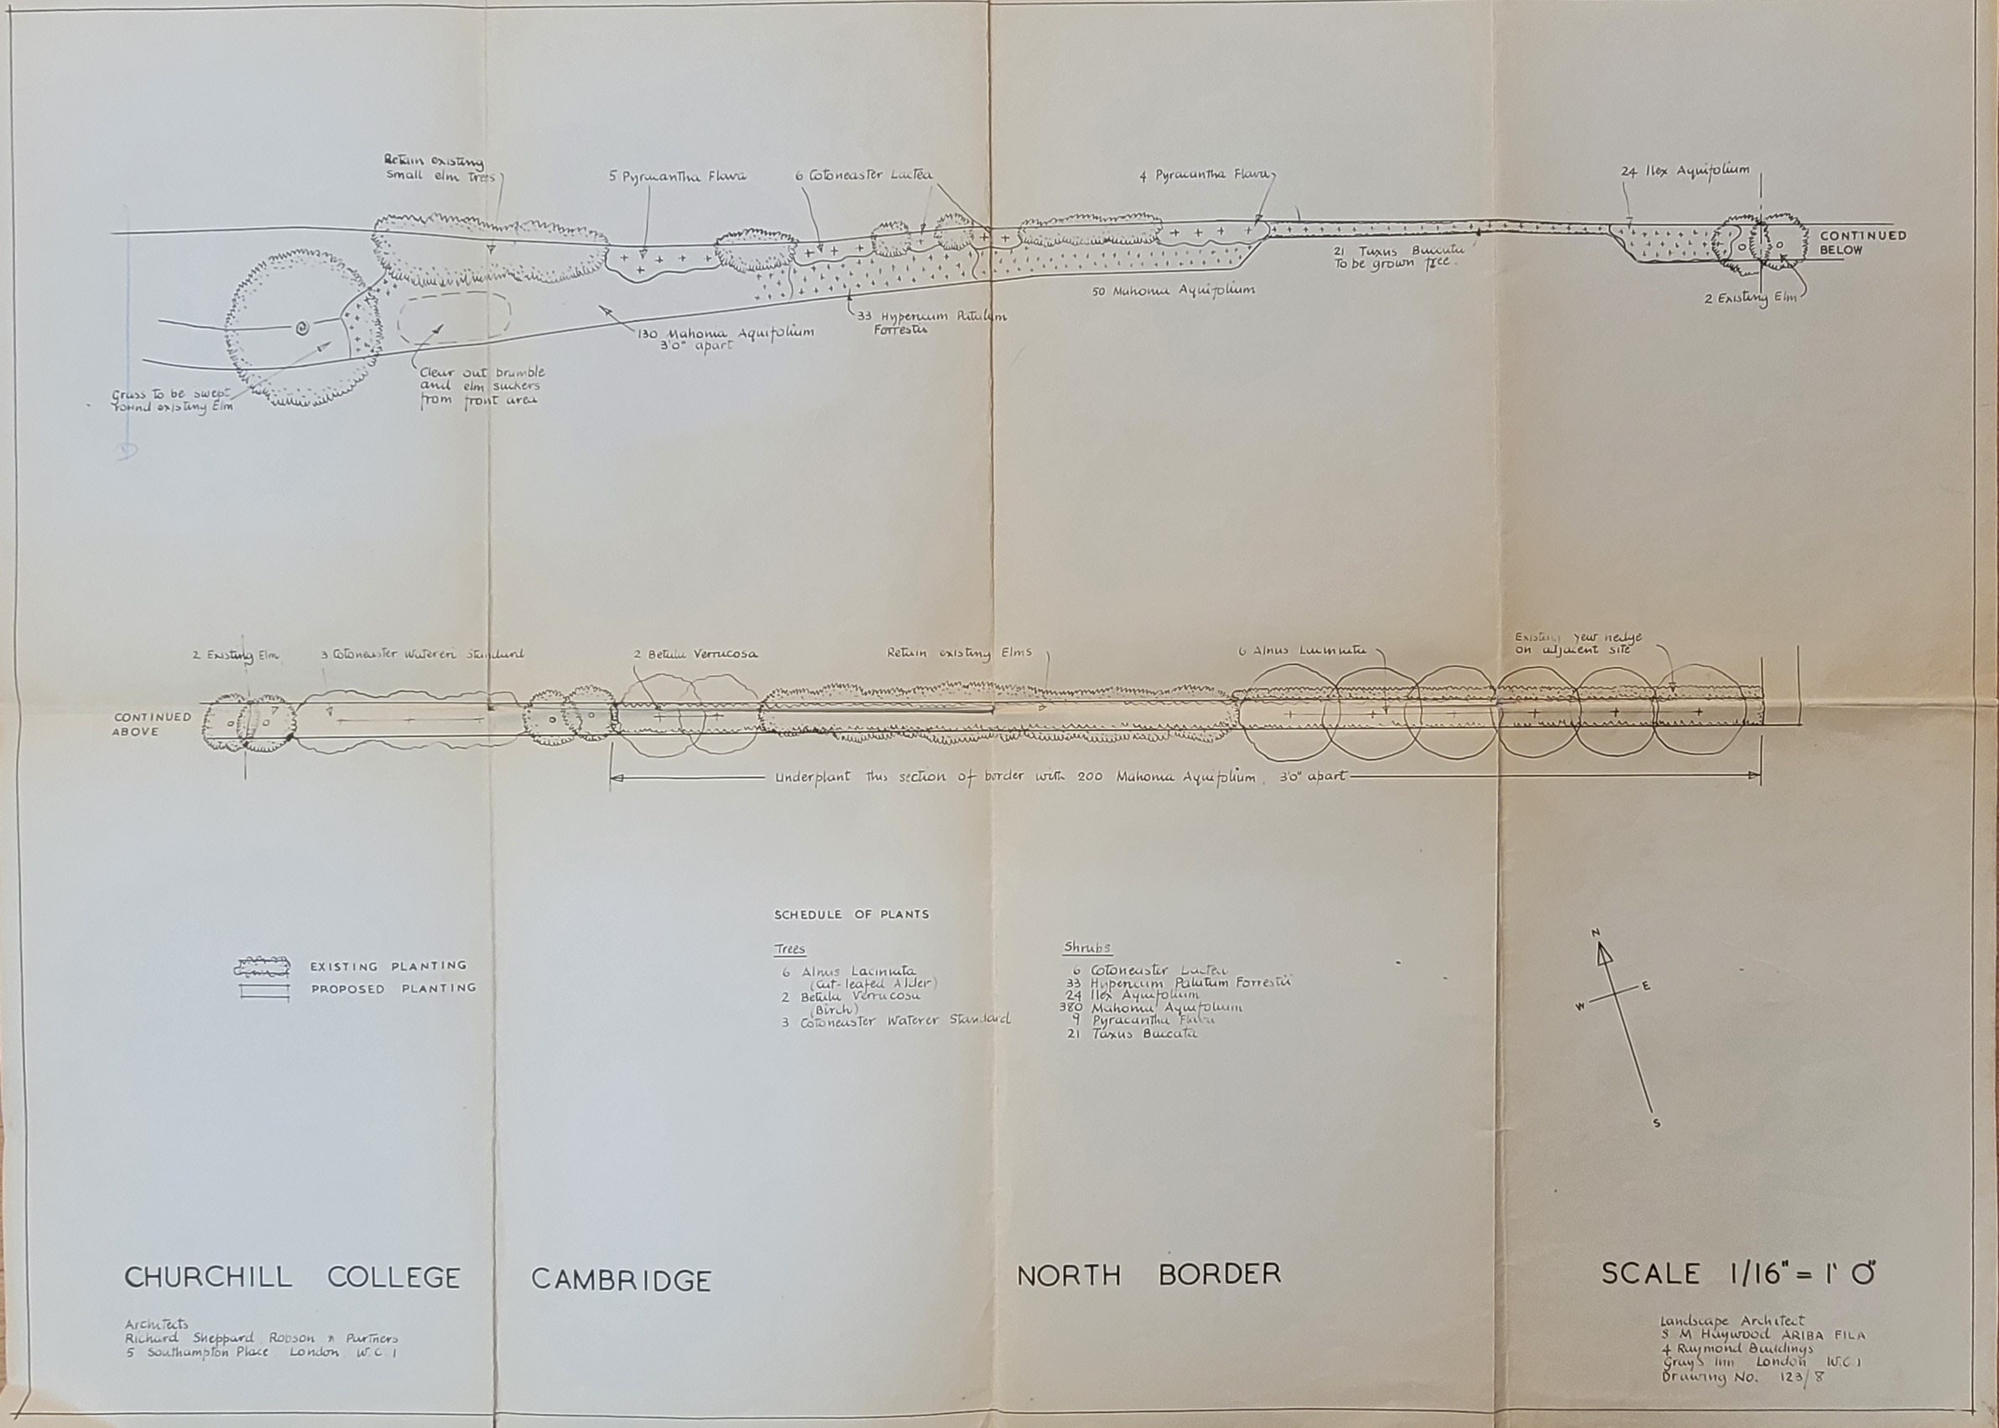 Retain existing
small elm trees
5 Pyracantha Flava
6 Cotoneaster Lactea
4 Pyracantha Flava
24 Ilex Aquifolium
CONTINUED
BELOW
21 Taxus Baccata
To be grown free.
2 Existing Elm
50 Mahonia Aquifolium
33 Hypericum Patulum
Forrestii
130 Mahonia Aquifolium
3'0" apart
Clear out bramble
and elm suckers
from front area
Grass to be swept
round existing Elm
2 Existing Elm
3 Cotoneaster Watereri Standard
2 Betula Verrucosa
Retain existing Elms
6 Alnus Laciniata
Existing yew hedge
on adjacent site
CONTINUED
ABOVE
Underplant this section of border with 200 Mahonia Aquifolium, 3'0" apart
SCHEDULE OF PLANTS
Trees
6 Alnus Laciniata
(Cut-leafed Alder)
2 Betula Verrucosa
(Birch)
3 Cotoneaster Waterer Standard
Shrubs
6 Cotoneaster Lactea
33 Hypericum Patutum Forrestii
24 Ilex Aquifolium
380 Mahonia Aquifolium
9 Pyracantha Flava
21 Taxus Baccata
EXISTING PLANTING
PROPOSED PLANTING
N
E
W
S
CHURCHILL COLLEGE CAMBRIDGE
NORTH BORDER
SCALE 1/16" = 1' 0"
Architects
Richard Sheppard Robson & Partners
5 Southampton Place London W.C.1
Landscape Architect
S M Haywood ARIBA FILA
4 Raymond Buildings
Grays Inn London W.C.1
Drawing No. 123/8